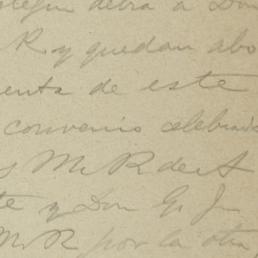 debía a Don
R y quedan abo
enta de este
convenio celebrado
s M R de A
te y Don G. J.
M R por la otra,